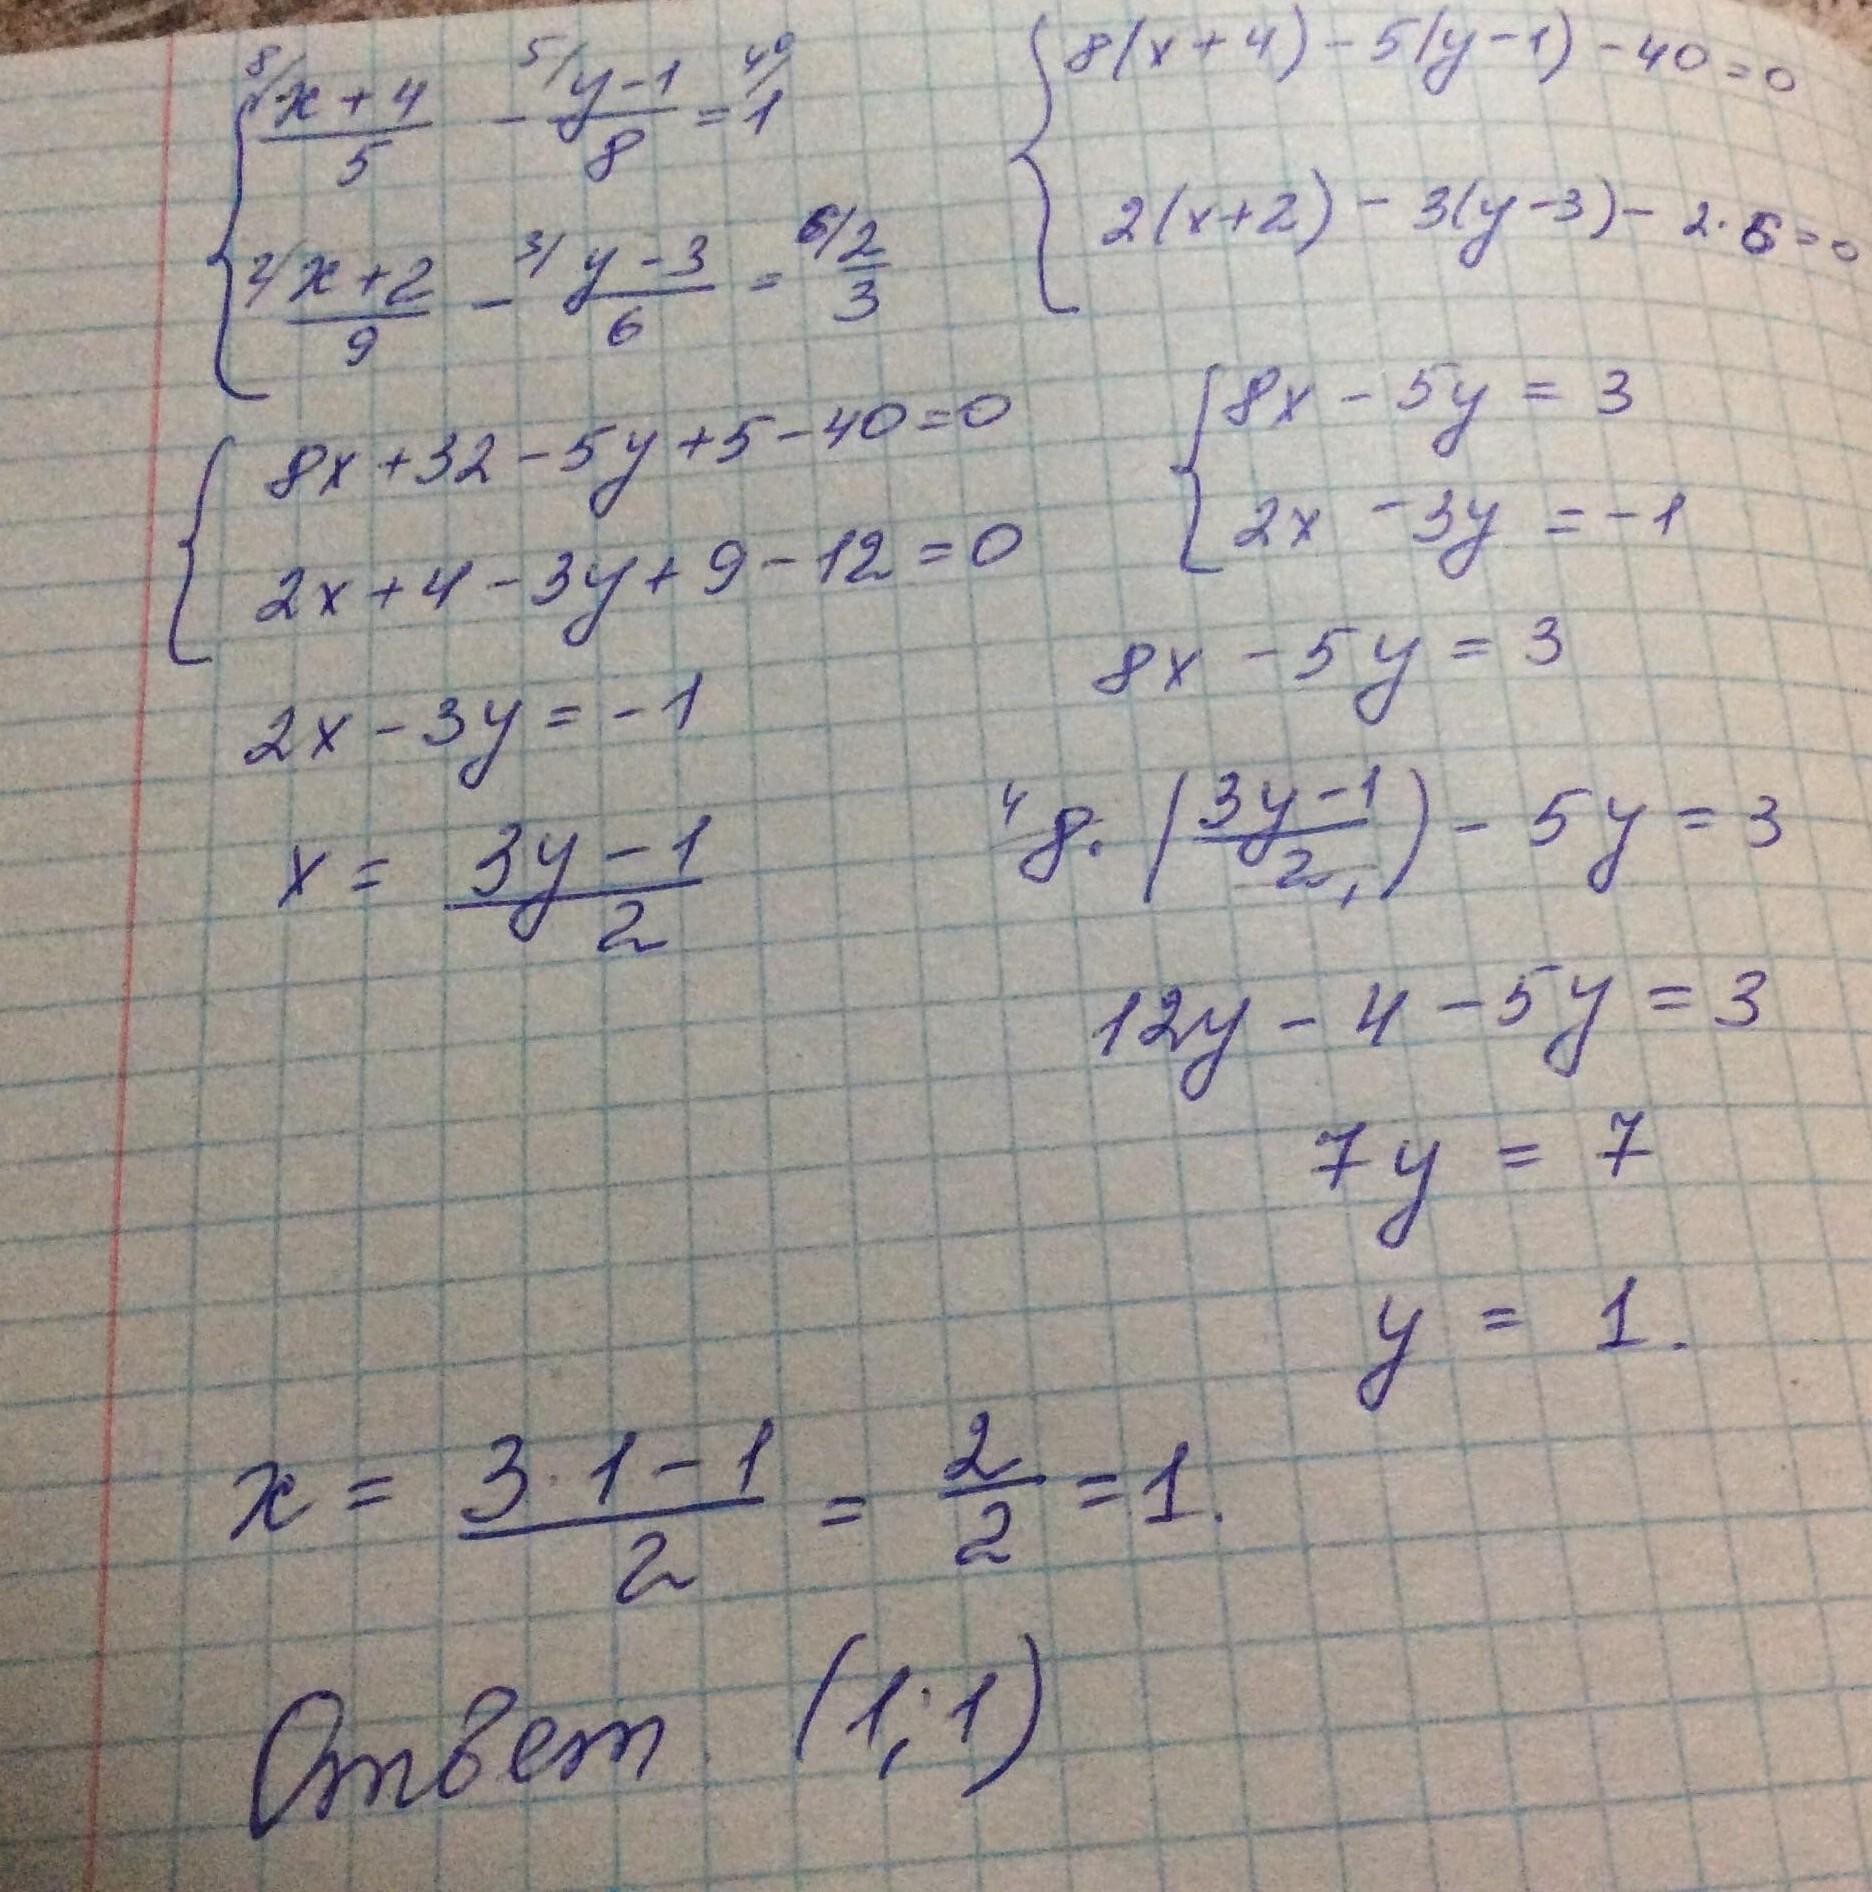 { 8/ x+4/5 - 5/ y-1/8 = 40/ 1
2/ x+2/9 - 3/ y-3/6 = 6/ 2/3
{ 8(x+4)-5(y-1)-40=0
2(x+2)-3(y-3)-2·6=0
{ 8x+32-5y+5-40=0
2x+4-3y+9-12=0
{ 8x-5y=3
2x-3y=-1
2x-3y=-1
x= 3y-1/2
8x-5y=3
4 8·(3y-1/2)-5y=3
12y-4-5y=3
7y=7
y=1.
x= 3·1-1/2 = 2/2 =1.
Ответ (1;1)